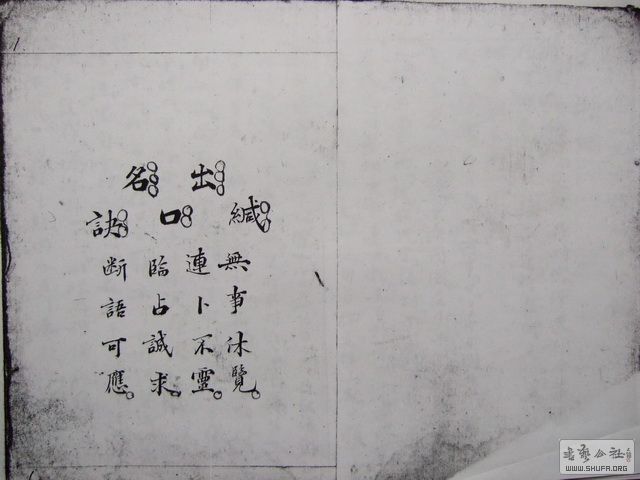 出名
緘口訣
無事休覽
連卜不靈
臨占誠求
断語可應
書藝公社
WWW.SHUFA.ORG